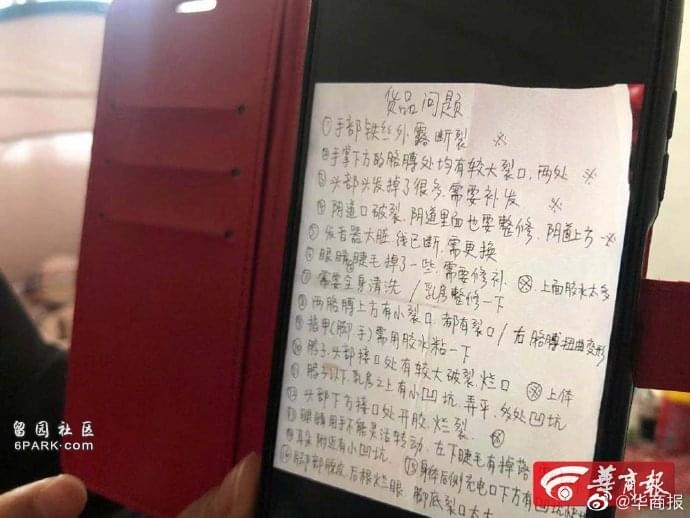 货品问题
①手部铁丝外露断裂 ※
②手掌下方的胳膊处均有较大裂口，两处 ※
③头部头发掉了很多，需要补发 ※
④阴道口破裂，阴道里面也要整修，阴道上方 ※
⑤发音器大脏，线已断，需更换
⑥眼睛睫毛掉了一些，需要修补 ※，上面胶水太多
⑦需要全身清洗/乳房整修一下
⑧两胳膊上方有小裂口，都有裂口/右胳膊扭曲变形
⑨指甲(脚手)需用胶水粘一下
⑩脖子，头部接口处有较大破裂，烂口 ※上体
⑪脖子以下，乳房之上有小凹坑，弄平，多处凹坑
⑫头部下方接口处开胶，烂裂 ※
眼睛用手不能灵活转动，左下睫毛有掉落
耳朵附近有小凹坑 ⑮身体后侧充电口下方有凹坑
脚部脱皮，后根烂眼，脚底裂口太大
留园社区
6PARK.COM
华商报
@华商报